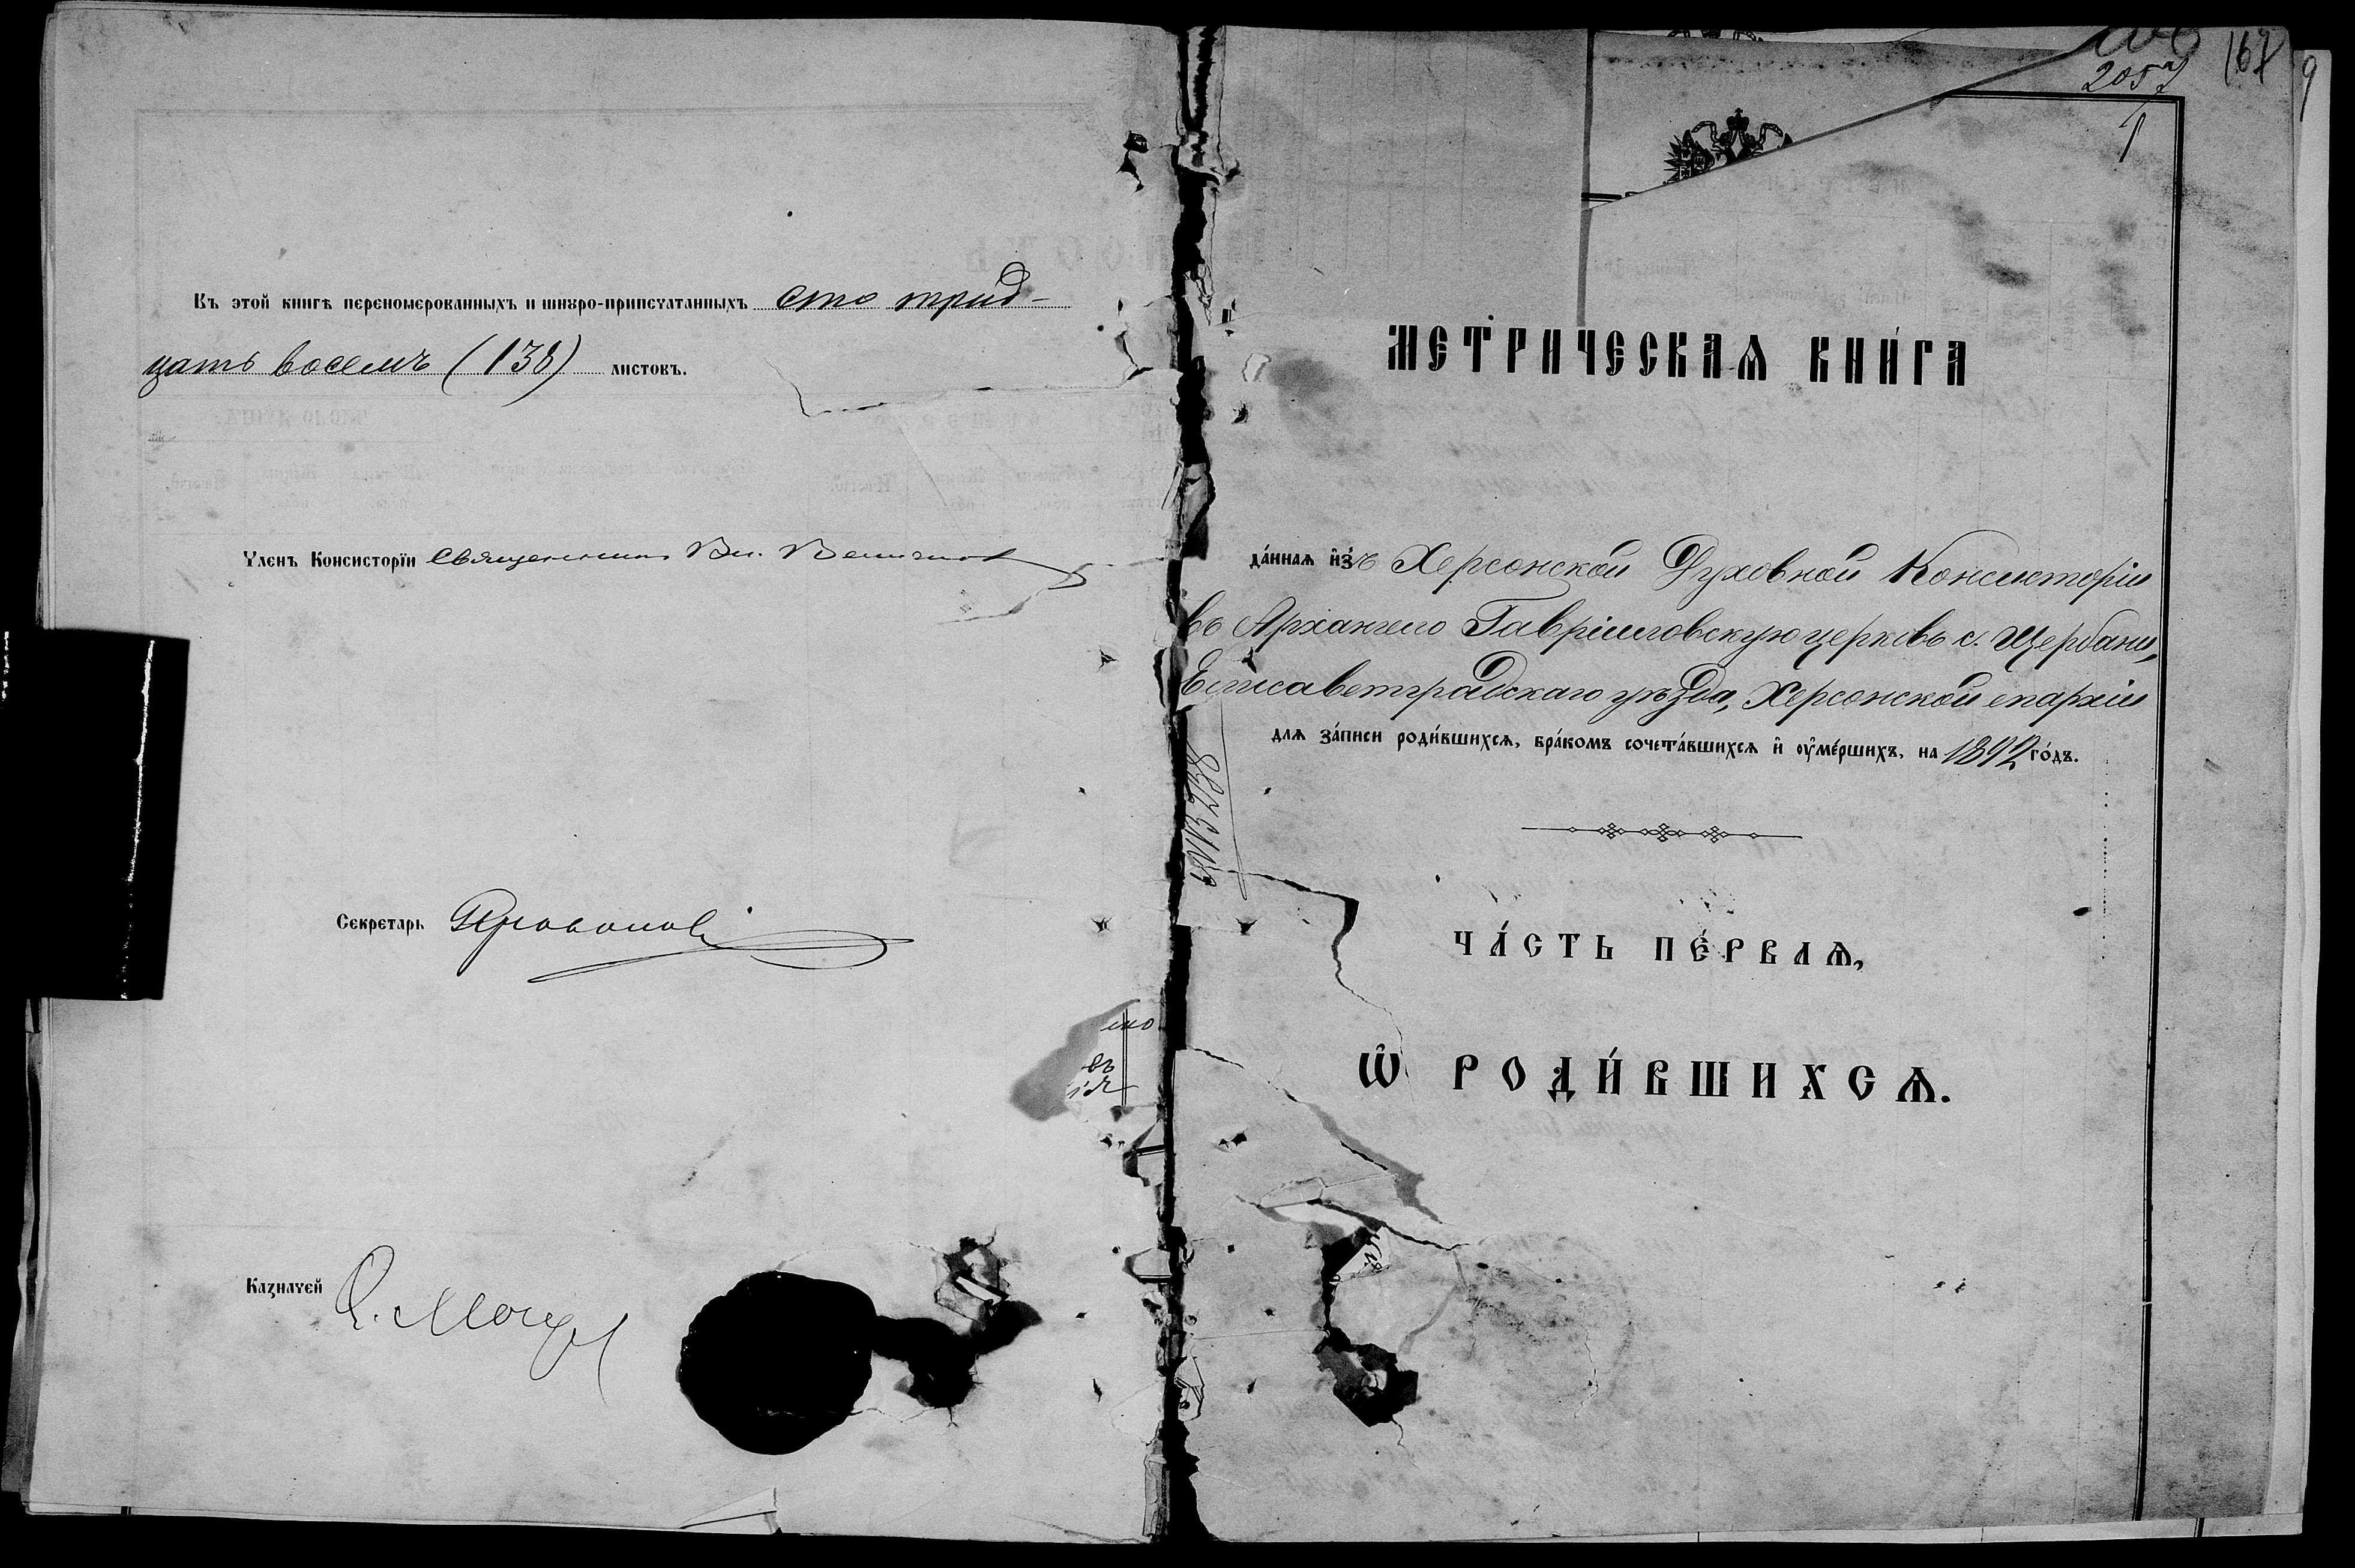 Въ этой книгѣ перенομерованныхъ и шнуро-припечатанныхъ сто трид-
цать восемь (138) листовъ.
Членъ Консисторіи Священникъ Вл.
Секретарь
Казначей
167
9
205
1
МЕТРИ́ЧЕСКАѦ КНИ́ГА
да́нная изъ Херсонской Духовной Консисторіи
въ Архангело Гавріиловскую церковь с. Щербани,
Елисаветградскаго уѣзда, Херсонской епархіи
для за́писи роди́вшихся, бра́комъ сочета́вшихся и оуме́ршихъ, на 1892 го́дъ.
ЧА́СТЬ ПЕ́РВАѦ,
Ѡ РОДИ́ВШИХСѦ.